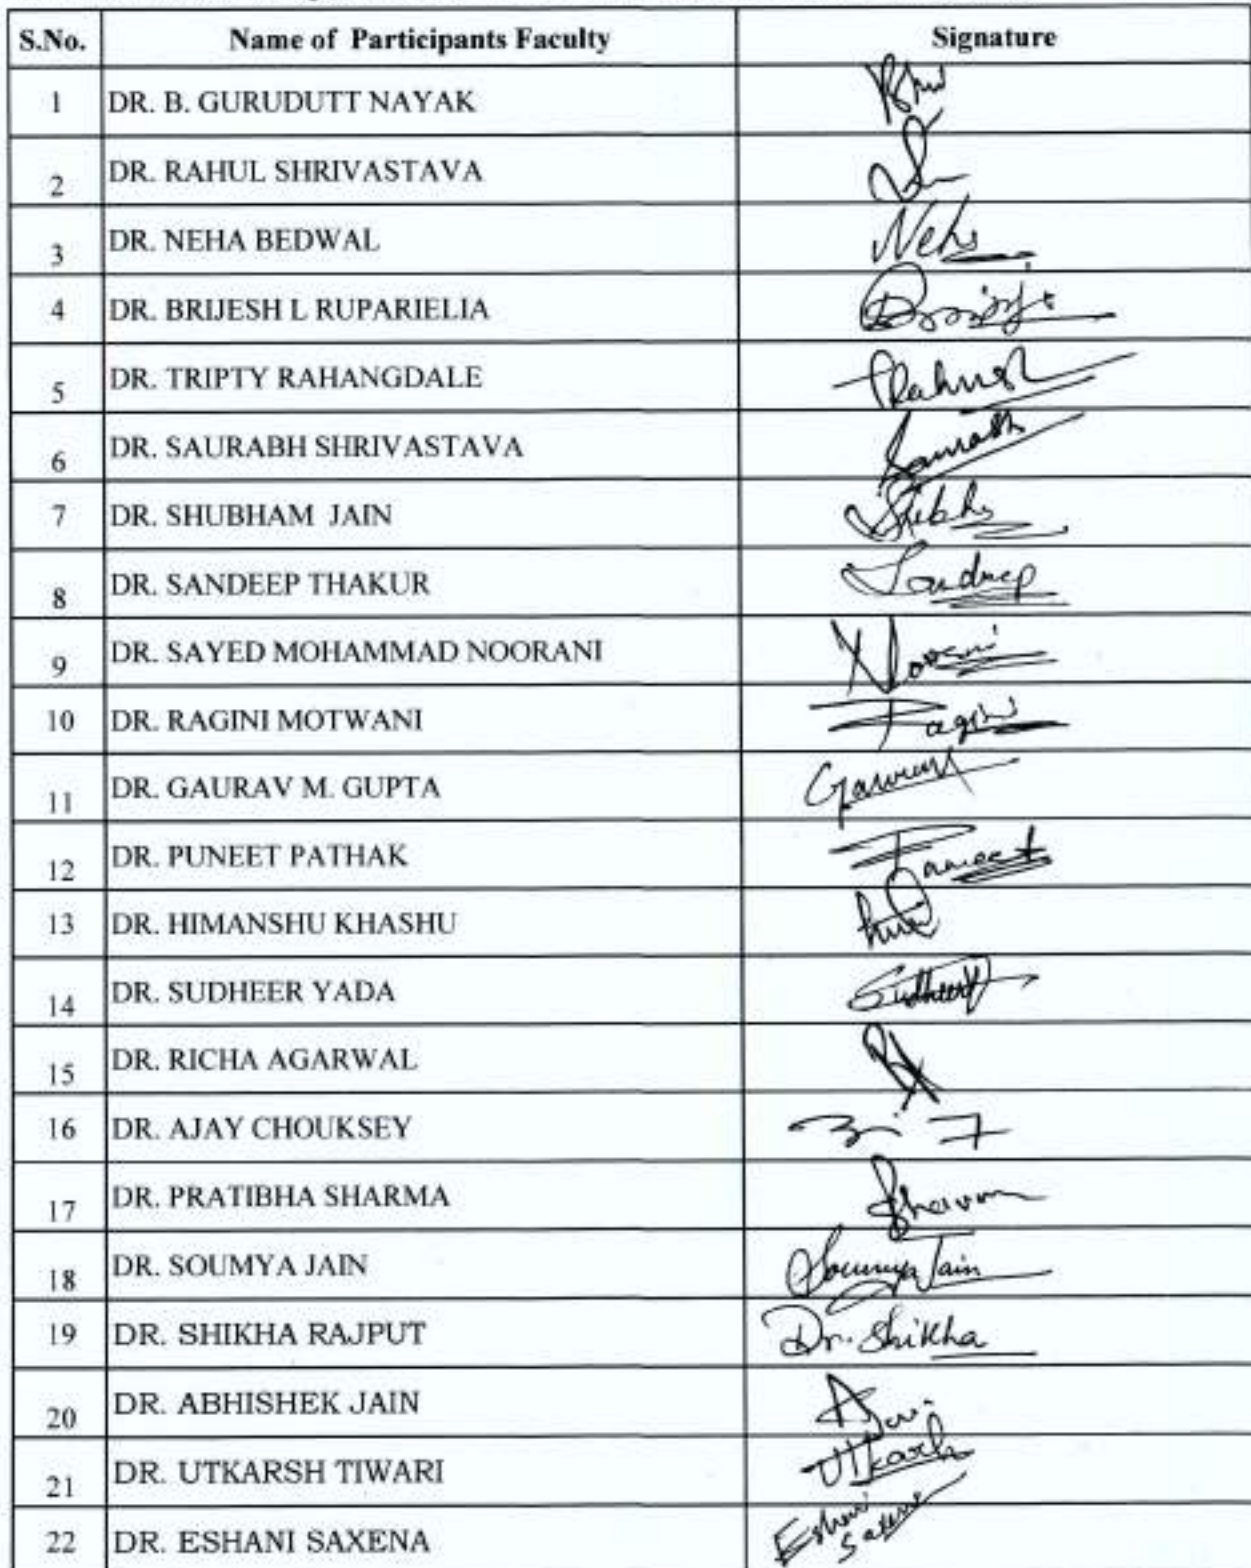 S.No. Name of Participants Faculty Signature
1 DR. B. GURUDUTT NAYAK
2 DR. RAHUL SHRIVASTAVA
3 DR. NEHA BEDWAL Neha
4 DR. BRIJESH L RUPARIELIA
5 DR. TRIPTY RAHANGDALE
6 DR. SAURABH SHRIVASTAVA Saurabh
7 DR. SHUBHAM JAIN
8 DR. SANDEEP THAKUR Sandeep
9 DR. SAYED MOHAMMAD NOORANI Noorani
10 DR. RAGINI MOTWANI Ragini
11 DR. GAURAV M. GUPTA Gaurav
12 DR. PUNEET PATHAK Puneet
13 DR. HIMANSHU KHASHU
14 DR. SUDHEER YADA Sudheer
15 DR. RICHA AGARWAL
16 DR. AJAY CHOUKSEY
17 DR. PRATIBHA SHARMA
18 DR. SOUMYA JAIN Soumya Jain
19 DR. SHIKHA RAJPUT Dr. Shikha
20 DR. ABHISHEK JAIN
21 DR. UTKARSH TIWARI Utkarsh
22 DR. ESHANI SAXENA Eshani Saxena